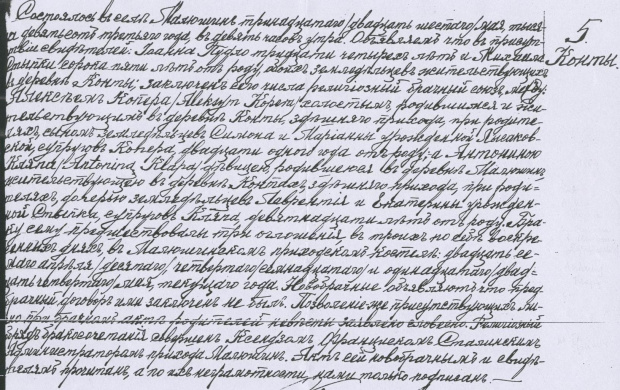 5
Конты.
Состоялось въ селѣ Малюшинъ тринадцатаго /двадцать шестаго/ мая, тысяча
девятьсотъ третьяго года, въ девять часовъ утра. Объявляемъ что въ присут-
ствіи свидѣтелей: Іоанна Пудло тридцати четырехъ лѣтъ и Михаила
сорока пяти лѣтъ отъ роду, обоихъ земледѣльцевъ жительствующихъ
въ деревнѣ Конты; заключенъ сего числа религіозный брачный союзъ между
Алексѣемъ Копера /Aleksy Kopera/ холостымъ, родившимся и жи-
тельствующимъ въ деревнѣ Конты, здѣшняго прихода, при родите-
ляхъ, сыномъ земледѣльцевъ Симона и Маріанны урожденной Лисаков-
ской, супруговъ Копера, двадцати одного года отъ роду; и Антониною
Кляпа /Antonina Klapa/ дѣвицею, родившеюся въ деревнѣ Малюшинъ
жительствующею въ деревнѣ Контахъ, здѣшняго прихода, при роди-
теляхъ, дочерью земледѣльцевъ Лаврентія и Екатерины урожден-
ной супруговъ Кляпа, девятнадцати лѣтъ отъ роду. Бра-
ку сему предшествовали три оглашенія въ трехъ по себѣ воскре-
сныхъ дняхъ, въ Малюшинскомъ приходскомъ костелѣ: двадцать се-
маго апрѣля /десятаго/ четвертаго /семнадцатаго/ и одинадцатаго /двад-
цать четвертаго/ мая, текущаго года. Новобрачные объявляютъ что пред-
брачный договоръ ими заключенъ не былъ. Позволеніе же присутствующихъ ли-
чно при бракосоч. актѣ родителей невѣсты заявлено словесно. Религіозный
обрядъ бракосочетанія совершенъ Ксендзомъ Францискомъ
Администраторомъ прихода Малюшинъ. Актъ сей новобрачнымъ и свидѣ-
телямъ прочитанъ, а по ихъ неграмотности, нами только подписанъ.